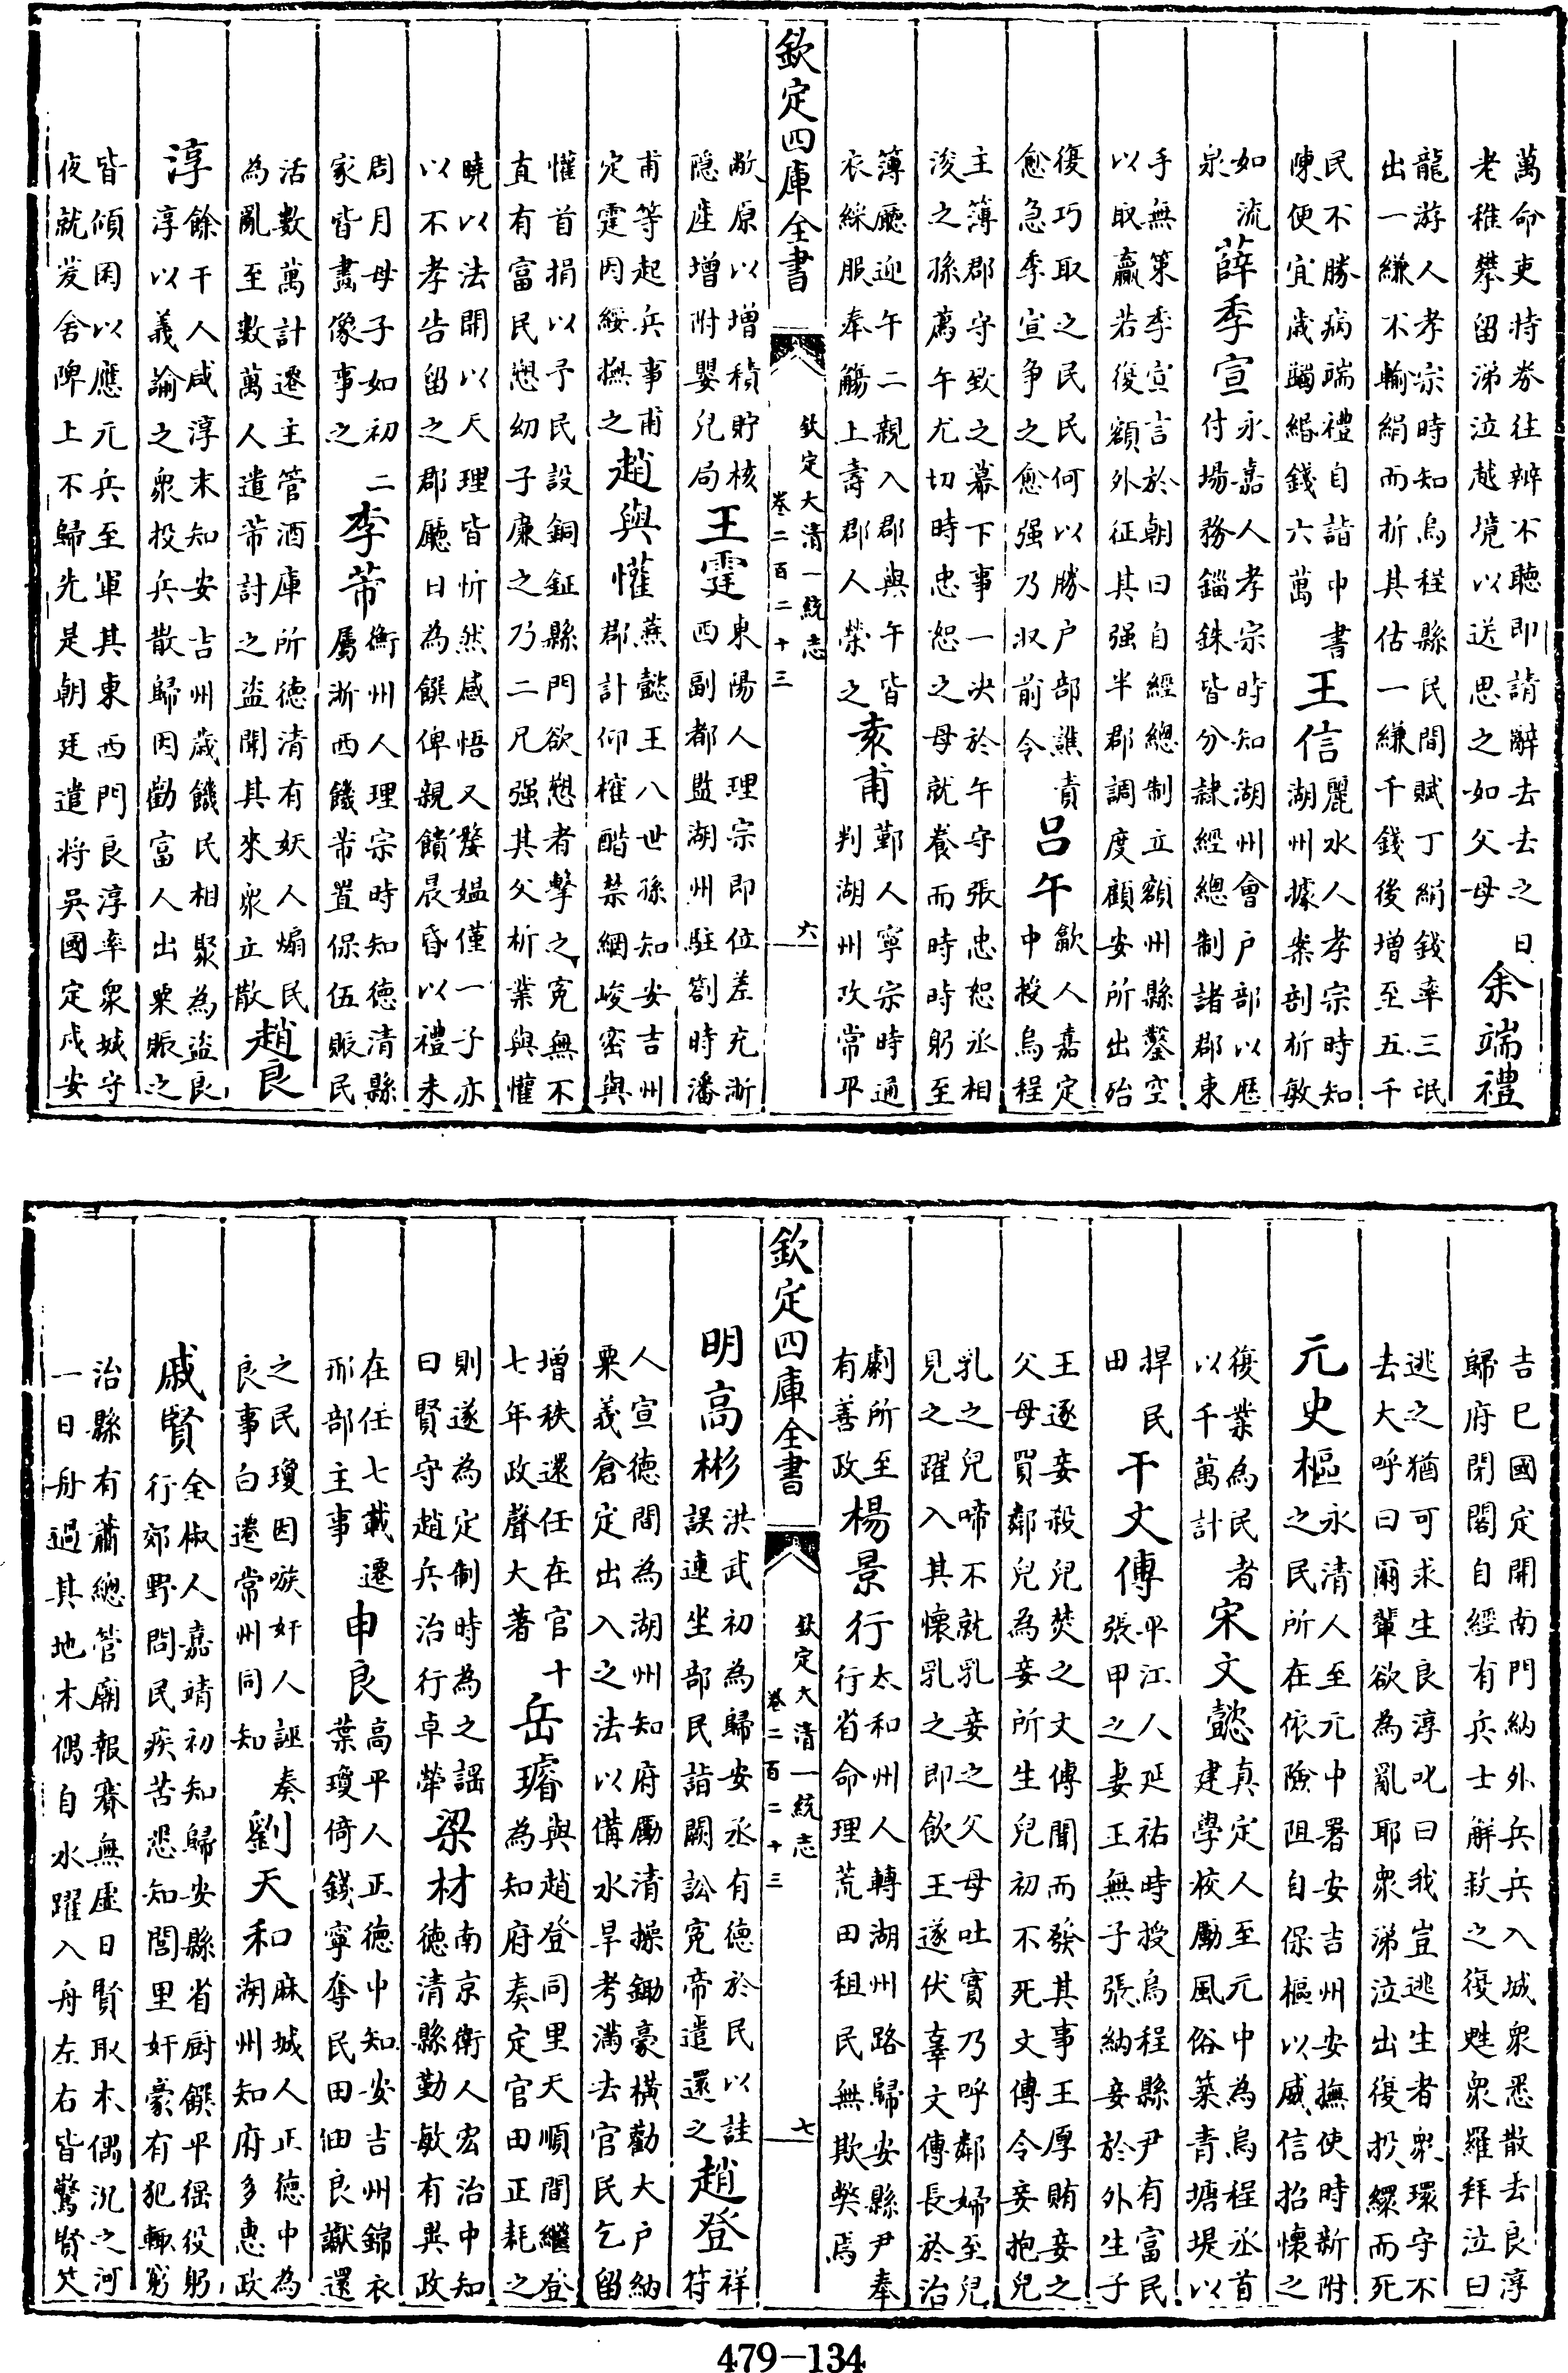 萬命吏持券往辨不聽即請辭去去之日
老稚攀留涕泣越境以送思之如父母
余端禮
龍游人孝宗時知烏程縣民間賦丁絹錢率三氓
出一縑不輸絹而折其估一縑千錢後增至五千
民不勝病端禮自詣中書
陳便宜歲蠲緡錢六萬
王信
麗水人孝宗時知
湖州據案剖析敏
如流
泉
薛季宣
永嘉人孝宗時知湖州會户部以厯
付場務錙銖皆分隸經總制諸郡東
手無策季宣言於朝曰自經總制立額州縣鑿空
以取贏若復額外征其强半郡調度顧安所出殆
復巧取之民民何以勝户部譙責
愈急季宣争之愈强乃収前令
吕午
歙人嘉定
中授烏程
主簿郡守致之幕下事一决於午守張忠恕丞相
浚之孫薦午尤切時忠恕之母就養而時時躬至
簿廳迎午二親入郡與午皆
衣綵服奉觴上壽郡人榮之
袁甫
鄞人寧宗時通
判湖州改常平
欽定四庫全書
欽定大清一統志
卷二百二十三
六
敝原以增積貯核
隱産增附嬰兒局
王霆
東陽人理宗即位差充浙
西副都監湖州駐劄時潘
甫等起兵事甫
定霆因綏撫之
趙與懽
燕懿王八世孫知安吉州
郡計仰榷酤禁網峻密與
懽首捐以予民設銅鉦縣門欲愬者擊之寃無不
直有富民愬幼子廉之乃二兄强其父析業與懽
曉以法開以天理皆忻然感悟又嫠媪僅一子亦
以不孝告留之郡廳日為饌俾親饋晨昏以禮未
周月母子如初二
家皆畫像事之
李芾
衡州人理宗時知德清縣
屬浙西饑芾置保伍賑民
活數萬計遷主管酒庫所德清有妖人煽民
為亂至數萬人遣芾討之盗聞其來衆立散
趙良
淳
餘干人咸淳末知安吉州歲饑民相聚為盗良
淳以義諭之衆投兵散歸因勸富人出粟賑之
皆傾囷以應元兵至軍其東西門良淳率衆城守
夜就茇舍陴上不歸先是朝廷遣将吳國定戍安
吉已國定開南門納外兵兵入城衆悉散去良淳
歸府閉閣自經有兵士解救之復甦衆羅拜泣曰
逃之猶可求生良淳叱曰我豈逃生者衆環守不
去大呼曰爾輩欲為亂耶衆涕泣出復投繯而死
元史樞
永清人至元中署安吉州安撫使時新附
之民所在依險阻自保樞以威信招懷之
復業為民者
以千萬計
宋文懿
真定人至元中為烏程丞首
建學校勵風俗築青塘堤以
捍民
田
干文傳
平江人延祐時授烏程縣尹有富民
張甲之妻王無子張納妾於外生子
王逐妾殺兒焚之文傳聞而發其事王厚賄妾之
父母買鄰兒為妾所生兒初不死文傳令妾抱兒
乳之兒啼不就乳妾之父母吐實乃呼鄰婦至兒
見之躍入其懷乳之即飲王遂伏辜文傳長於治
劇所至
有善政
楊景行
太和州人轉湖州路歸安縣尹奉
行省命理荒田租民無欺弊焉
欽定四庫全書
欽定大清一統志
卷二百二十三
七
明高彬
洪武初為歸安丞有德於民以詿
誤連坐部民詣闕訟寃帝遣還之
趙登
祥
符
人宣德間為湖州知府勵清操鋤豪橫勸大户納
粟義倉定出入之法以備水旱考滿去官民乞留
增秩還任在官十
七年政聲大著
岳璿
與趙登同里天順間繼登
為知府奏定官田正耗之
則遂為定制時為之謡
曰賢守趙兵治行卓犖
梁材
南京衛人宏治中知
德清縣勤敏有異政
在任七載遷
刑部主事
申良
高平人正德中知安吉州錦衣
葉瓊倚錢寧奪民田佃良讞還
之民瓊因嗾奸人誣奏
良事白遷常州同知
劉天和
麻城人正德中為
湖州知府多惠政
戚賢
全椒人嘉靖初知歸安縣省厨饌平徭役躬
行郊野問民疾苦悉知閭里奸豪有犯輒窮
治縣有蕭總管廟報賽無虚日賢取木偶沉之河
一日舟過其地木偶自水躍入舟左右皆驚賢笑
479-134